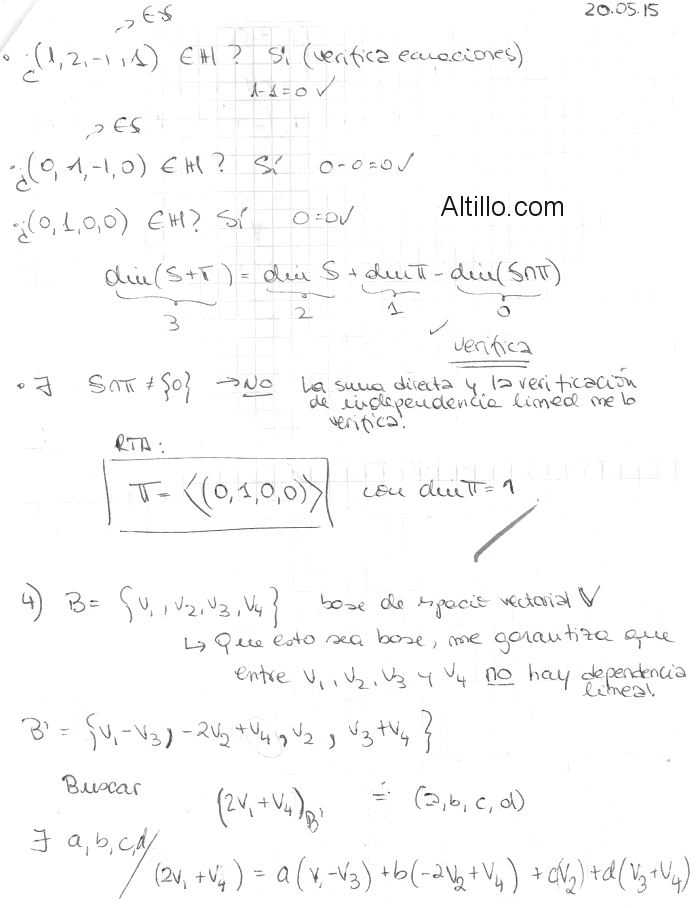 20.05.15
→ ∈ S
• ¿(1, 2, -1, 1) ∈ H? Sí (verifica ecuaciones)
1-1=0 ✓
→ ∈ S
• ¿(0, 1, -1, 0) ∈ H? Sí 0-0=0 ✓
• ¿(0, 1, 0, 0) ∈ H? Sí 0=0 ✓
Altillo.com
dim(S+T) = dim S + dim T - dim(S∩T)
3 2 1 0
✓ verifica
• ∃ S∩T ≠ {0} → NO La suma directa y la verificación
de independencia lineal me lo
verifica.
RTA:
T = ⟨(0,1,0,0)⟩ con dim T = 1
4) B = {v₁, v₂, v₃, v₄} base de espacio vectorial V
↳ Que esto sea base, me garantiza que
entre v₁, v₂, v₃ y v₄ no hay dependencia
lineal.
B' = {v₁-v₃, -2v₂+v₄, v₂, v₃+v₄}
Buscar (2v₁+v₄)B' = (a, b, c, d)
∃ a, b, c, d /
(2v₁+v₄) = a(v₁-v₃) + b(-2v₂+v₄) + c(v₂) + d(v₃+v₄)